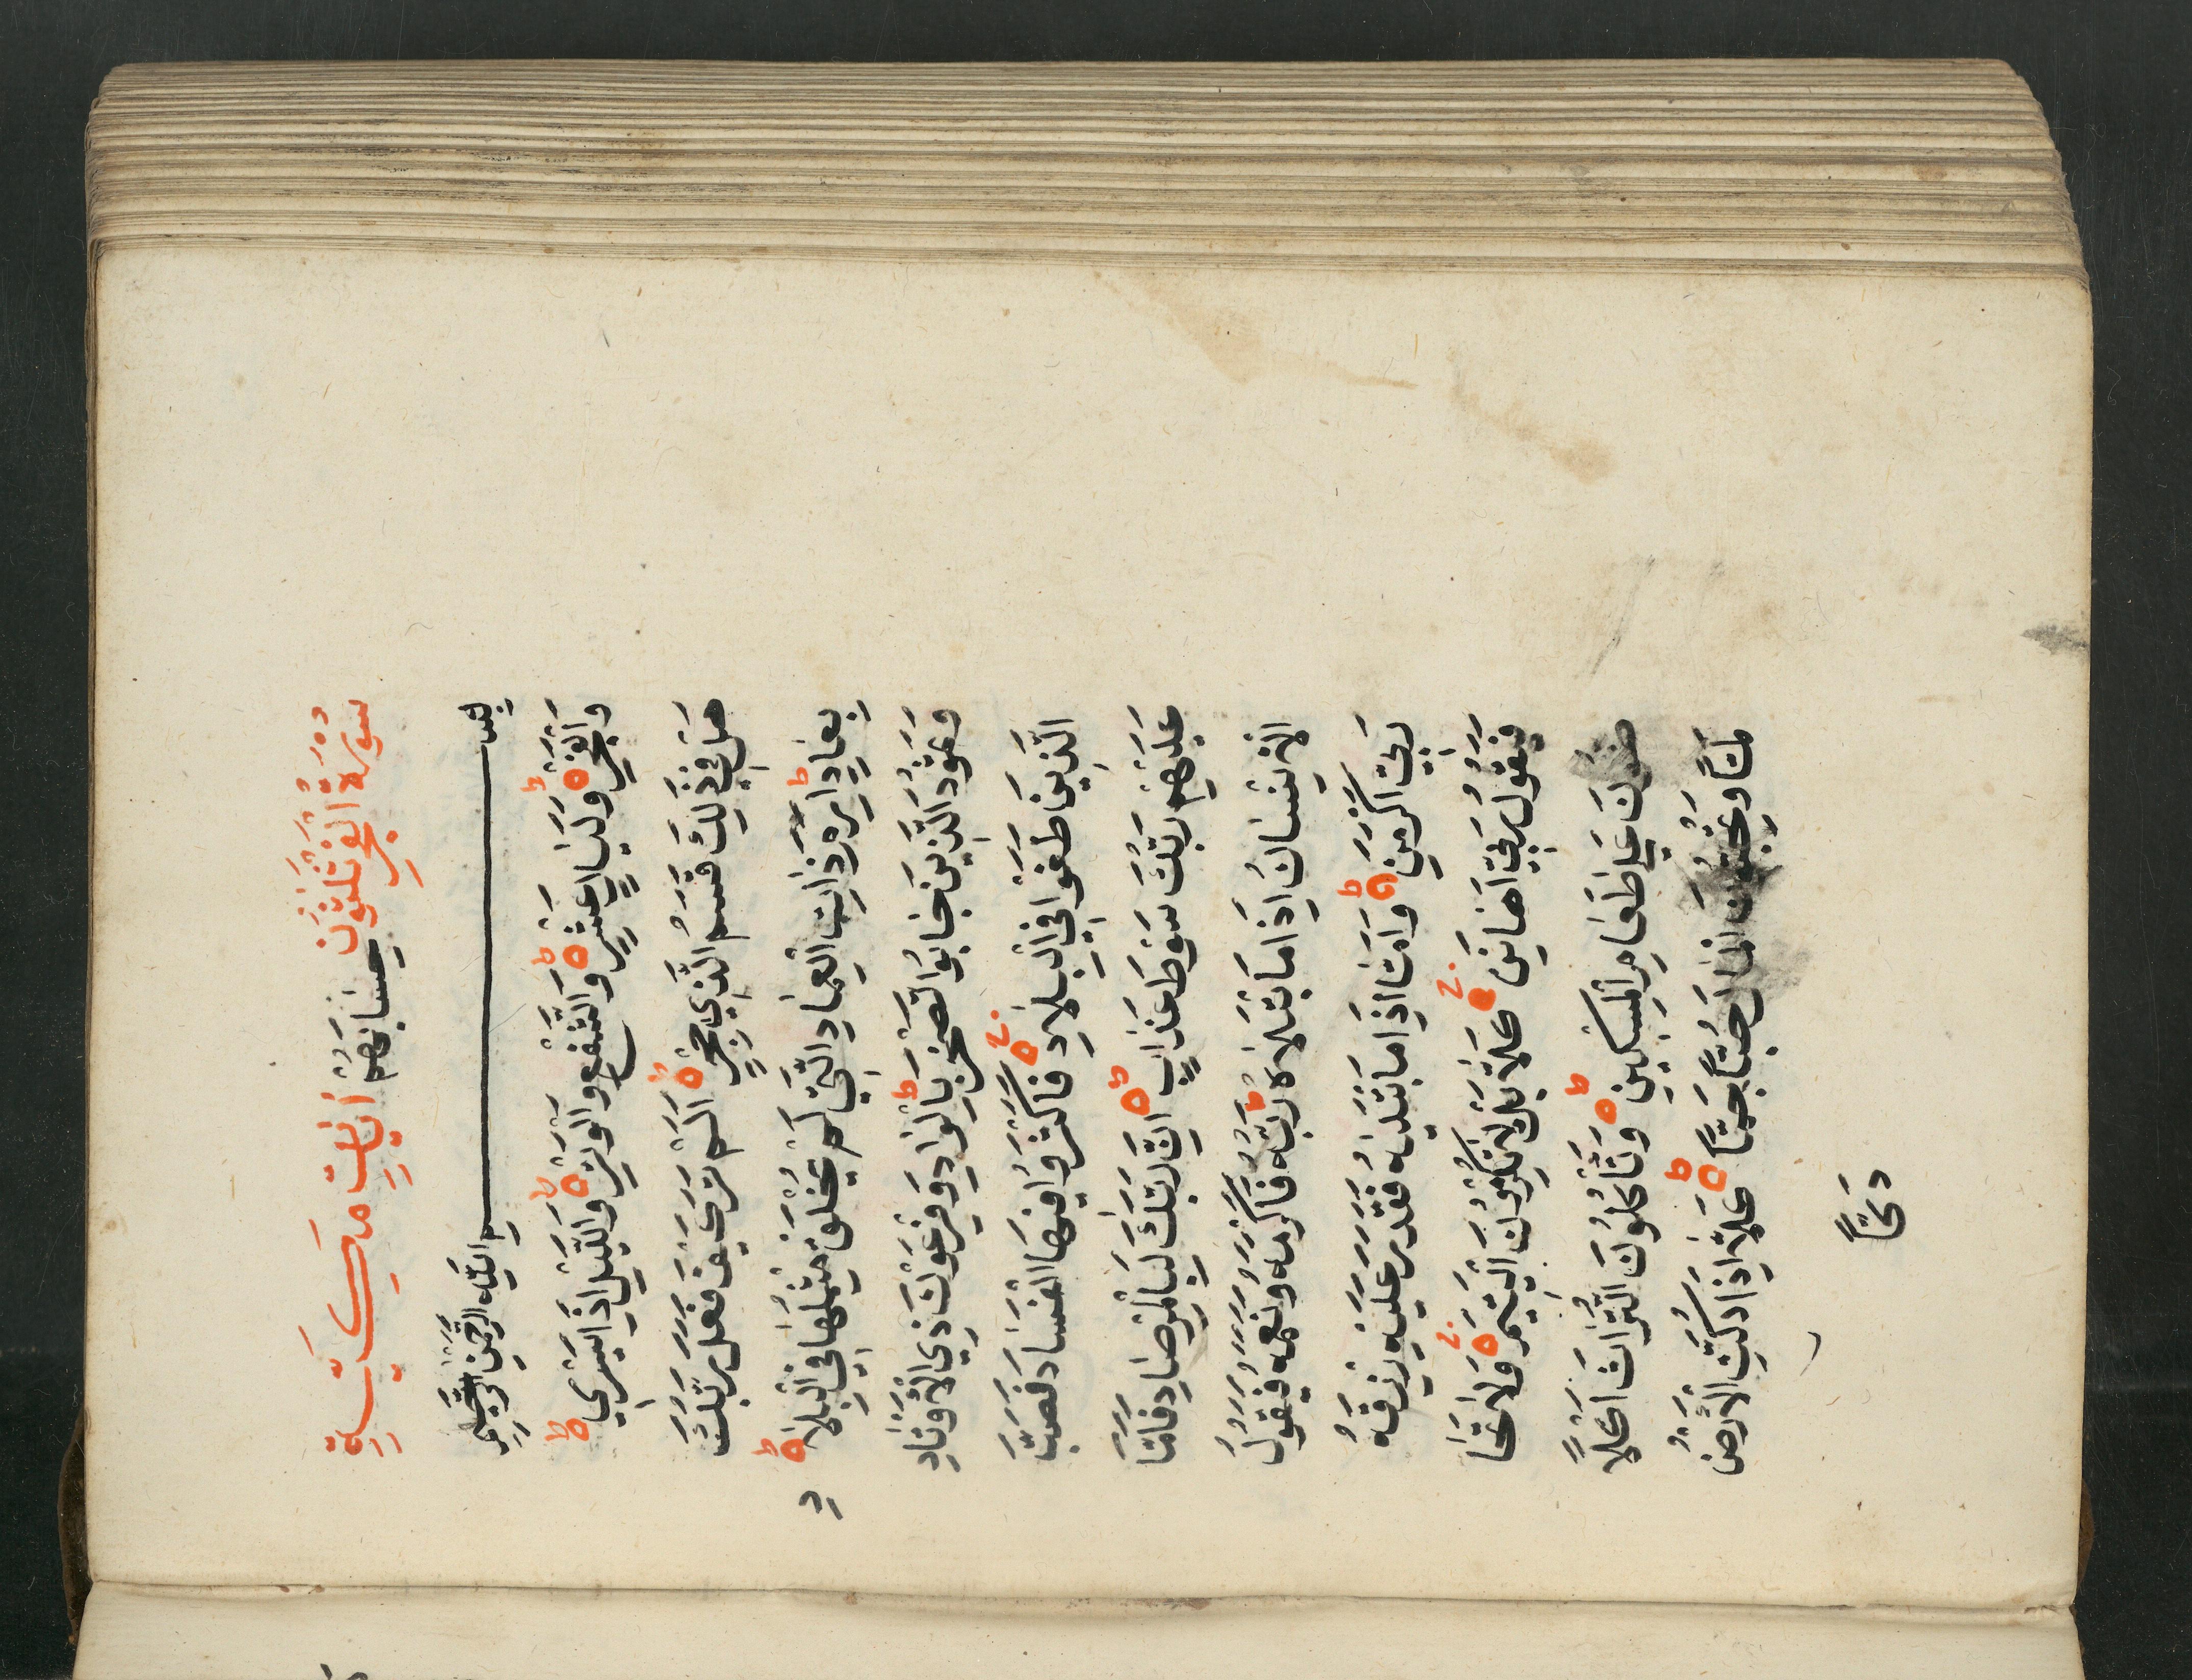 سُورَةُ الْفَجْرِ ثَلٰثُونَ اٰيَاتٍ مَكِّيَّةٍ
حِسَابُهُمْ
بِسْمِ اللّٰهِ الرَّحْمٰنِ الرَّحِيمِ
وَالْفَجْرِ وَلَيَالٍ عَشْرٍ وَالشَّفْعِ وَالْوَتْرِ وَاللَّيْلِ اِذَا يَسْرِي
هَلْ فِي ذٰلِكَ قَسَمُ الَّذِي حِجْرٍ اَلَمْ تَرَ كَيْفَ فَعَلَ رَبُّكَ
بِعَادٍ اِرَمَ ذَاتِ الْعِمَادِ الَّتِي لَمْ يُخْلَقْ مِثْلُهَا فِي الْبِلَا
دِ
وَثَمُودَ الَّذِينَ جَابُوا الصَّخْرَ بِالْوَادِ وَفِرْعَوْنَ ذِي الْاَوْتَادِ
الَّذِينَ طَغَوْا فِي الْبِلَادِ فَاَكْثَرُوا فِيهَا الْفَسَادَ فَصَبَّ
عَلَيْهِمْ رَبُّكَ سَوْطَ عَذَابٍ اِنَّ رَبَّكَ لَبِالْمِرْصَادِ فَاَمَّا
الْاِنْسَانُ اِذَا مَا ابْتَلَاهُ رَبُّهُ فَاَكْرَمَهُ وَنَعَّمَهُ فَيَقُولُ
رَبِّي اَكْرَمَنِ وَاَمَّا اِذَا مَا ابْتَلَيٰهُ فَقَدَرَ عَلَيْهِ رِزْقَهُ
فَيَقُولُ رَبِّي اَهَانَنِ كَلَّا بَلْ لَا تُكْرِمُونَ الْيَتِيمَ وَلَا تَحَا
ضُونَ عَلٰي طَعَامِ الْمِسْكِينِ وَتَاْكُلُونَ التُّرَاثَ اَكْلًا
لَمًّا وَتُحِبُّونَ الْمَالَ حُبًّا جَمًّا كَلَّا اِذَا دُكَّتِ الْاَرْضُ
دَكًّا